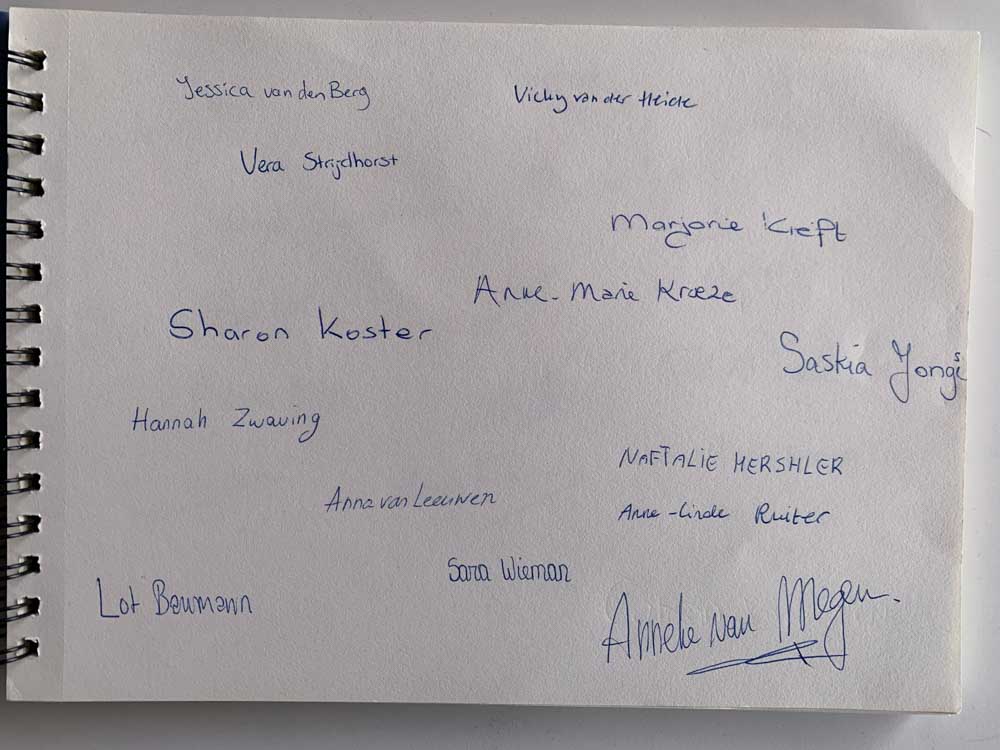 Jessica van den Berg
Vicky van der Heide
Vera Strijdhorst
Marjorie Kreift
Anne-Marie Kroeze
Sharon Koster
Saskia
Hannah Zwaving
NAFTALIE HERSHLER
Anna van Leeuwen
Anne-Linde Ruiter
Sara Wieman
Lot Baumann
Anneke van Megen.